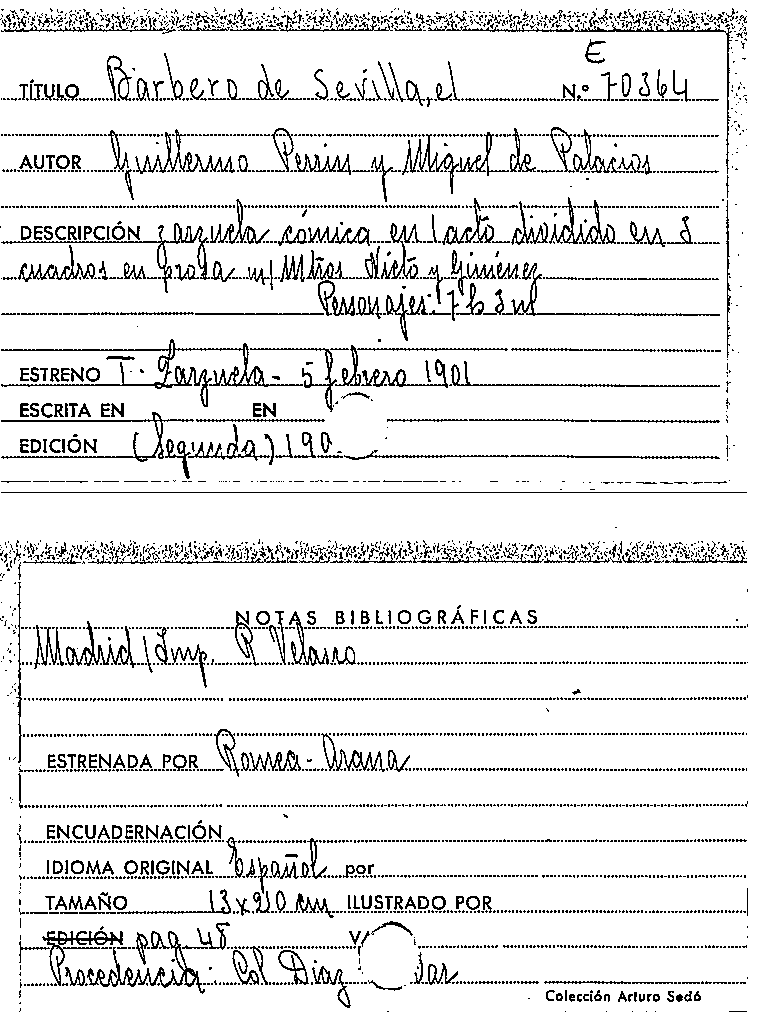 E
TÍTULO Barbero de Sevilla, el N.º 70364
AUTOR Guillermo Perrin y Miguel de Palacios
DESCRIPCIÓN zarzuela cómica en 1 acto dividido en 3
cuadros en prosa m/ Mtros Nieto y Giménez
Personajes: 7 h 3 m
ESTRENO T. Zarzuela - 5 febrero 1901
ESCRITA EN EN
EDICIÓN (Segunda) 190
NOTAS BIBLIOGRÁFICAS
Madrid / Imp. R Velasco
ESTRENADA POR Romea - Arana
ENCUADERNACIÓN
IDIOMA ORIGINAL Español por
TAMAÑO 13 x 20 cm ILUSTRADO POR
EDICIÓN pag. 48 V
Procedencia: Col Diaz
Colección Arturo Sedó